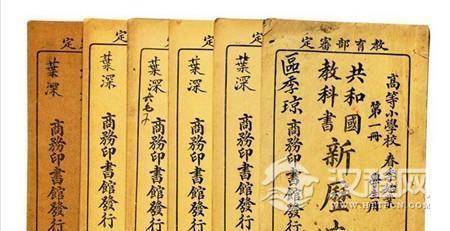 教育部審定
高等小學校
第一冊
春季始業
共和國
教科書
新歷
區季琼
商務印書館發行
定
葉深
商務印書館發行
定
葉深
商務印書館發行
定
葉深
商務印書館發行
定
葉深
商務印書館發行
定
葉深
商務印書館發行
汉程网